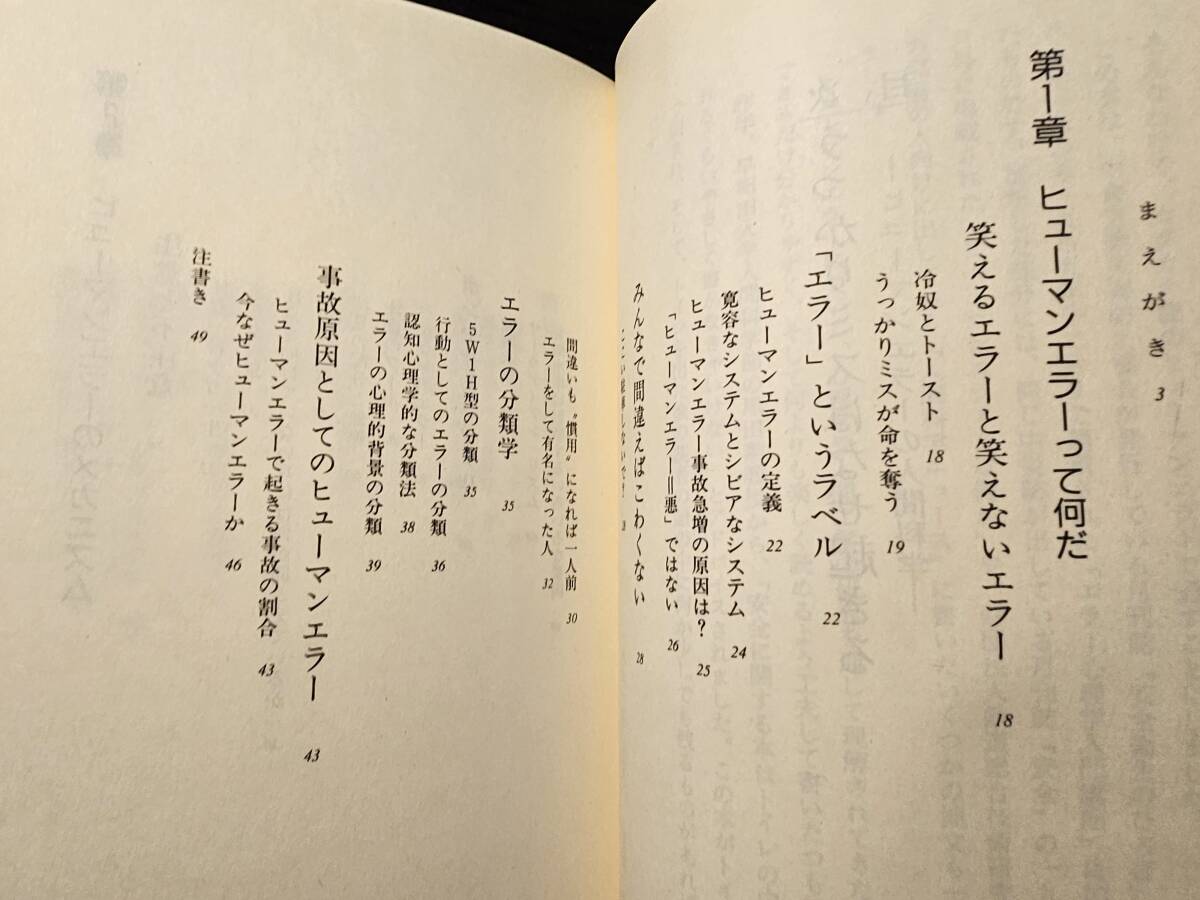 まえがき 3
第1章 ヒューマンエラーって何だ
笑えるエラーと笑えないエラー 18
冷奴とトースト 18
うっかりミスが命を奪う 19
「エラー」というラベル 22
ヒューマンエラーの定義 22
寛容なシステムとシビアなシステム 24
ヒューマンエラー事故急増の原因は? 25
「ヒューマンエラー=悪」ではない 26
みんなで間違えばこわくない 28
間違いも〝慣用〟になれば一人前 30
エラーをして有名になった人 32
エラーの分類学 35
5W1H型の分類 35
行動としてのエラーの分類 36
認知心理学的な分類法 38
エラーの心理的背景の分類 39
事故原因としてのヒューマンエラー 43
ヒューマンエラーで起きる事故の割合 43
今なぜヒューマンエラーか 46
注書き 49